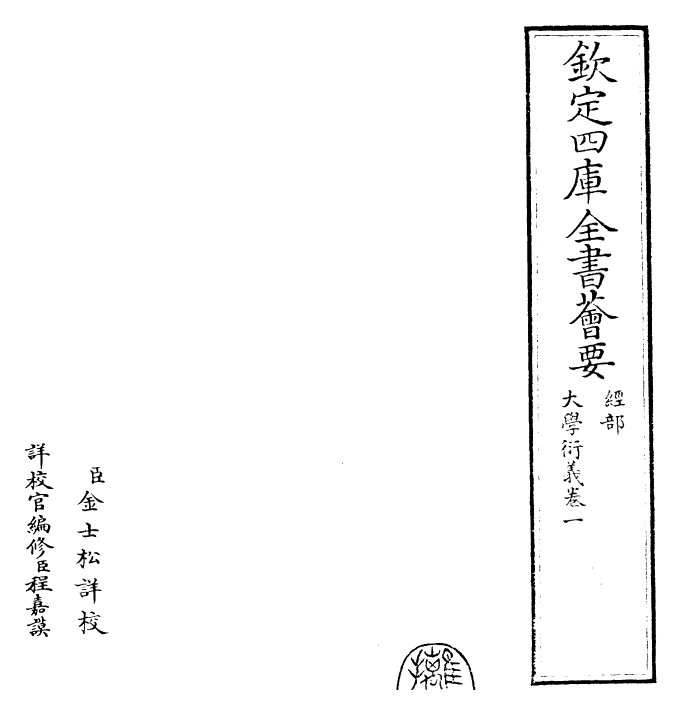 欽定四庫全書薈要
經部
大學衍義卷一
臣金士松詳校
詳校官編修臣程嘉謨